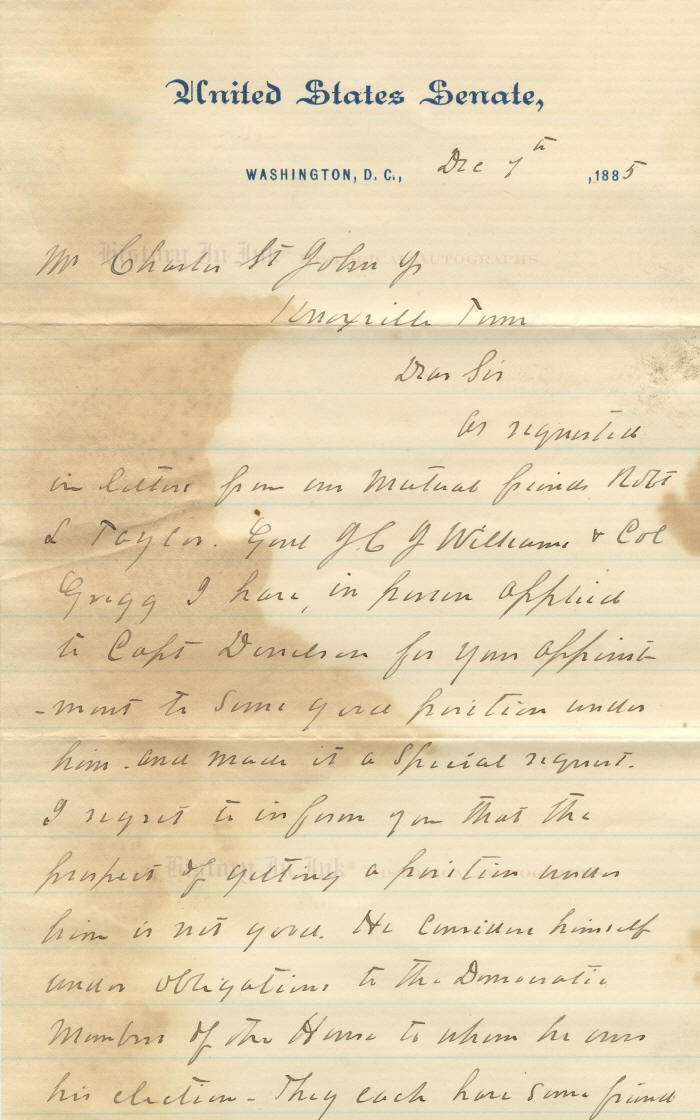 United States Senate,
WASHINGTON, D. C., Dec 7th, 1885
Mr Charles St John Jr
Knoxville Tenn
Dear Sir
As requested
in letters from our Mutual friends Robt
L Taylor. Genl J. C J Williams & Col
Gregg I have, in person applied
to Capt Donelson for your appoint
-ment to some good position under
him - and made it a special request.
I regret to inform you that the
prospect of getting a position under
him is not good. He considers himself
under obligations to the Democratic
Members of the House to whom he owes
his election - They each have some friend
History In Ink HISTORICAL AUTOGRAPHS
History In Ink